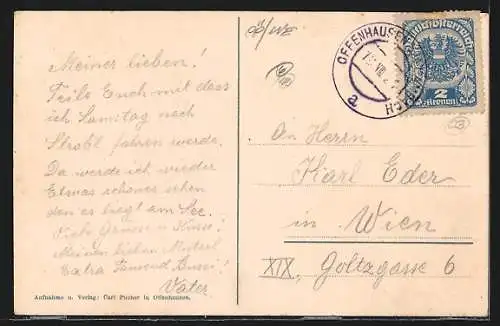 Meiner lieben!
Teile Euch mit dass
ich Samstag nach
Strobl fahren werde.
Da werde ich wieder
Etwas schönes sehen
den es liegt am See.
Viele Grüsse u Küsse!
Meinen lieben Mutzel
Extra Tausend Bussi!
Vater
Aufnahme u. Verlag: Carl Pucher in Offenhausen.
OFFENHAUSEN
a
Deutschösterreich
2
Kronen
An Herrn
Karl Eder
in Wien
XIX, Goltzgasse 6